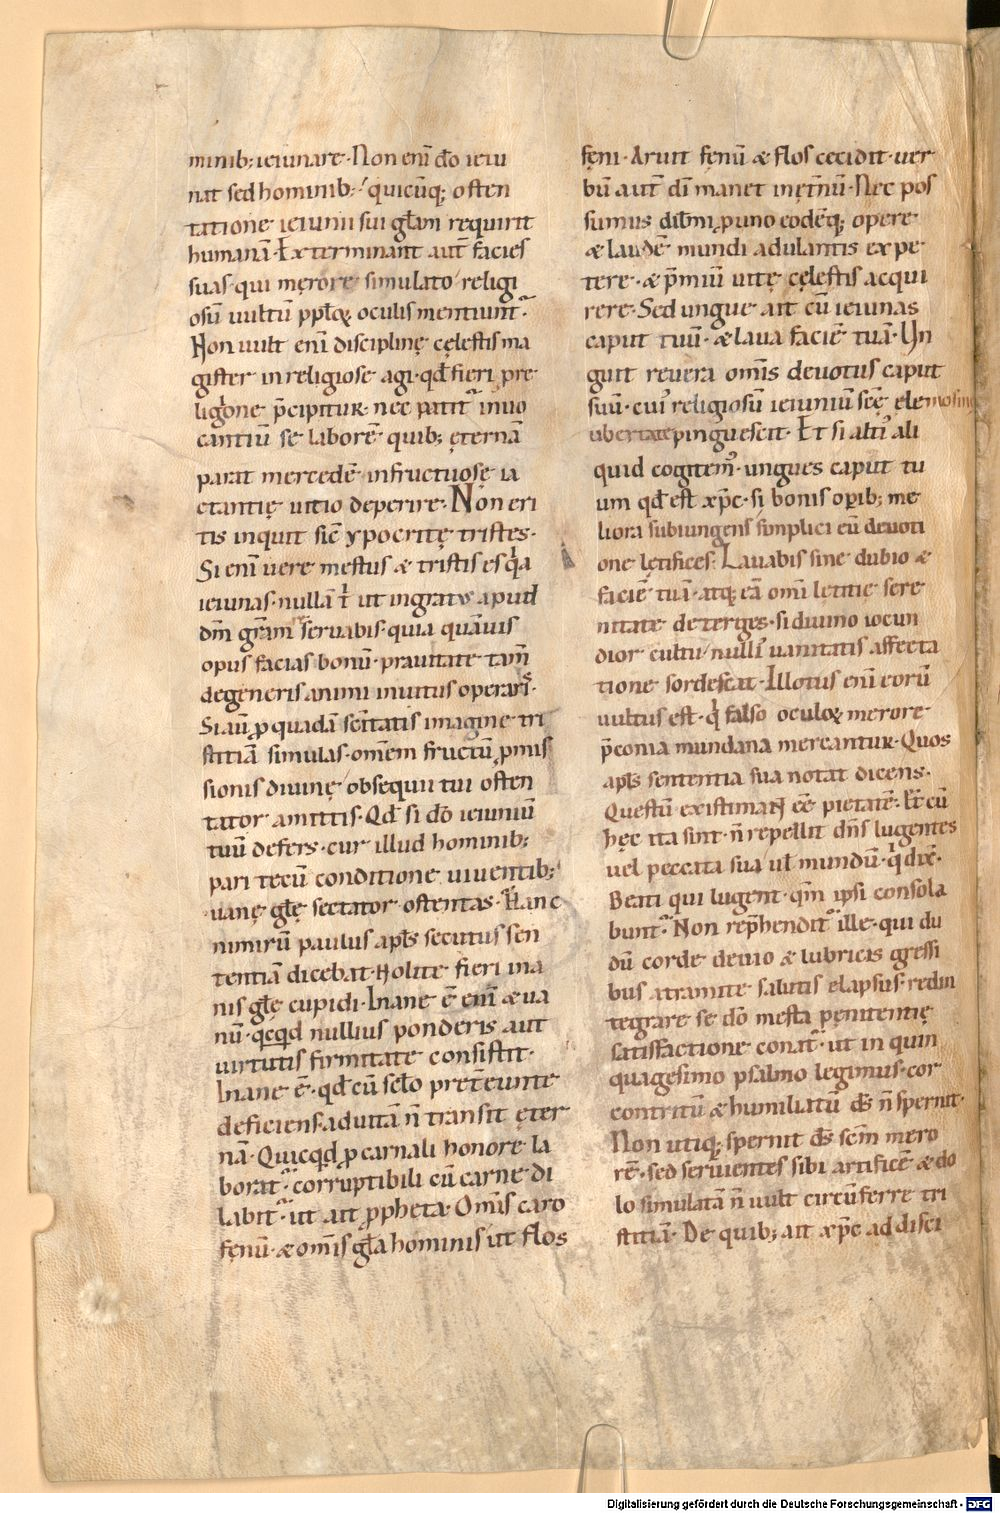 minib; ieiunare· Non eni̅ do̅ ieiu
nat sed hominib; quicu̅q; osten
tatione ieiunii sui gl̅am requirit
humana̅· Exterminant aut̅ facies
suas· qui męrore simulato religi
osu̅ uultu̅ oculis mentiunt̅·
Non uult eni̅ disciplinę cęlestis ma
gister inreligiose agi· qd̅ fieri pre
ligione p̅cipitur· nec patit̅ inuo
cantiu̅ se labore̅ quib; ęterna̅
parat mercede̅· infructuosę ia
ctantię uitio deperire· Non eri
tis inquit sic̅ ypocritę tristes·
Si eni̅ uere mestus & tristis es
ieiunas· nulla̅ ut ingratus apud
dm̅ gr̅am seruabis· quia qua̅uis
opus facias bonu̅· prauitate tam̅
degeneris animi inuitus operaris·
Si au̅ ꝓ quada̅ imagine tri
stitia̅ simulas· om̅em fructu̅ ꝓmis
sionis diuinę obsequii tui osten
tator amittis· Qd̅ si do̅ ieiuniu̅
tuu̅ defers· cur illud hominib;
pari tecu̅ conditione uiuentib;
uanę gl̅ę sectator ostentas· Hanc
nimiru̅ paulus apl̅s secutus sen
tentia̅ dicebat· Nolite fieri ina
nis gl̅ę cupidi· Inane e̅ eni̅ & ua
nu̅· nullius ponderis aut
uirtutis firmitate consistit·
Inane e̅· qd̅ cu̅ sc̅lo pret̅eunte
deficiens· ad uita̅ n̅ transit ęter
na̅· Quicqd̅ ꝓ carnali honore la
borat̅· corruptibili cu̅ carne di
labit̅· ut ait ꝓpheta· Om̅is caro
fęnu̅· & om̅is gl̅a hominis ut flos
fęni· Aruit fęnu̅ & flos cecidit· uer
bu̅ aut̅ di̅ manet inęt̅nu̅· Nec pos
sumus uno eode̅q; opere
& laude̅ mundi adulantis expe
tere· & p̅miu̅ uitę cęlestis acqui
rere· Sed ungue ait cu̅ ieiunas
caput tuu̅· & laua facie̅ tua̅· Un
guit reuera om̅is deuotus caput
suu̅· cui᾿ religiosu̅ ieiuniu̅ sc̅ę elemosinę
ubertate pinguescit· Et si alti᾿ ali
quid cogitem᾿· ungues caput tu
um qd̅ est xp̅c· si bonis op̅ib; me
liora subiungens simplici eu̅ deuoti
one lętifices· Lauabis sine dubio &
facie̅ tua̅· atq; ea̅ omi̅ letitię sere
nitate deterges· si diuino iocun
dior cultu nulli᾿ uanitatis affecta
tione sordescat· Illotus eni̅ eoru̅
uultus est· falso oculoꝝ merore
p̅conia mundana mercantur· Quos
apl̅s sententia sua notat dicens·
Questu̅ existimant ee̅ pietate̅· cu̅
hęc ita sint· n̅ repellit dn̅s lugentes
uel peccata sua ul̅ mundu̅· dix̅·
Beati qui lugent· qm̅ ipsi consola
bunt̅· Non rep̅hendit̅ ille· qui du
du̅ corde deuio & lubricis gressi
bus a tramite salutis elapsus· redin
tegrare se do̅ mesta pęnitentię
satisfactione conat̅· ut in quin
quagesimo psalmo legimus· cor
contritu̅ & humiliatu̅ ds̅ n̅ spernit·
Non utiq; spernit ds̅ mero
re̅· sed seruientes sibi artifice̅ & do
lo simulata̅ n̅ uult circu̅ferre tri
stitia̅· De quib; ait xp̅c ad disci
Digitalisierung gefördert durch die Deutsche Forschungsgemeinschaft - DFG